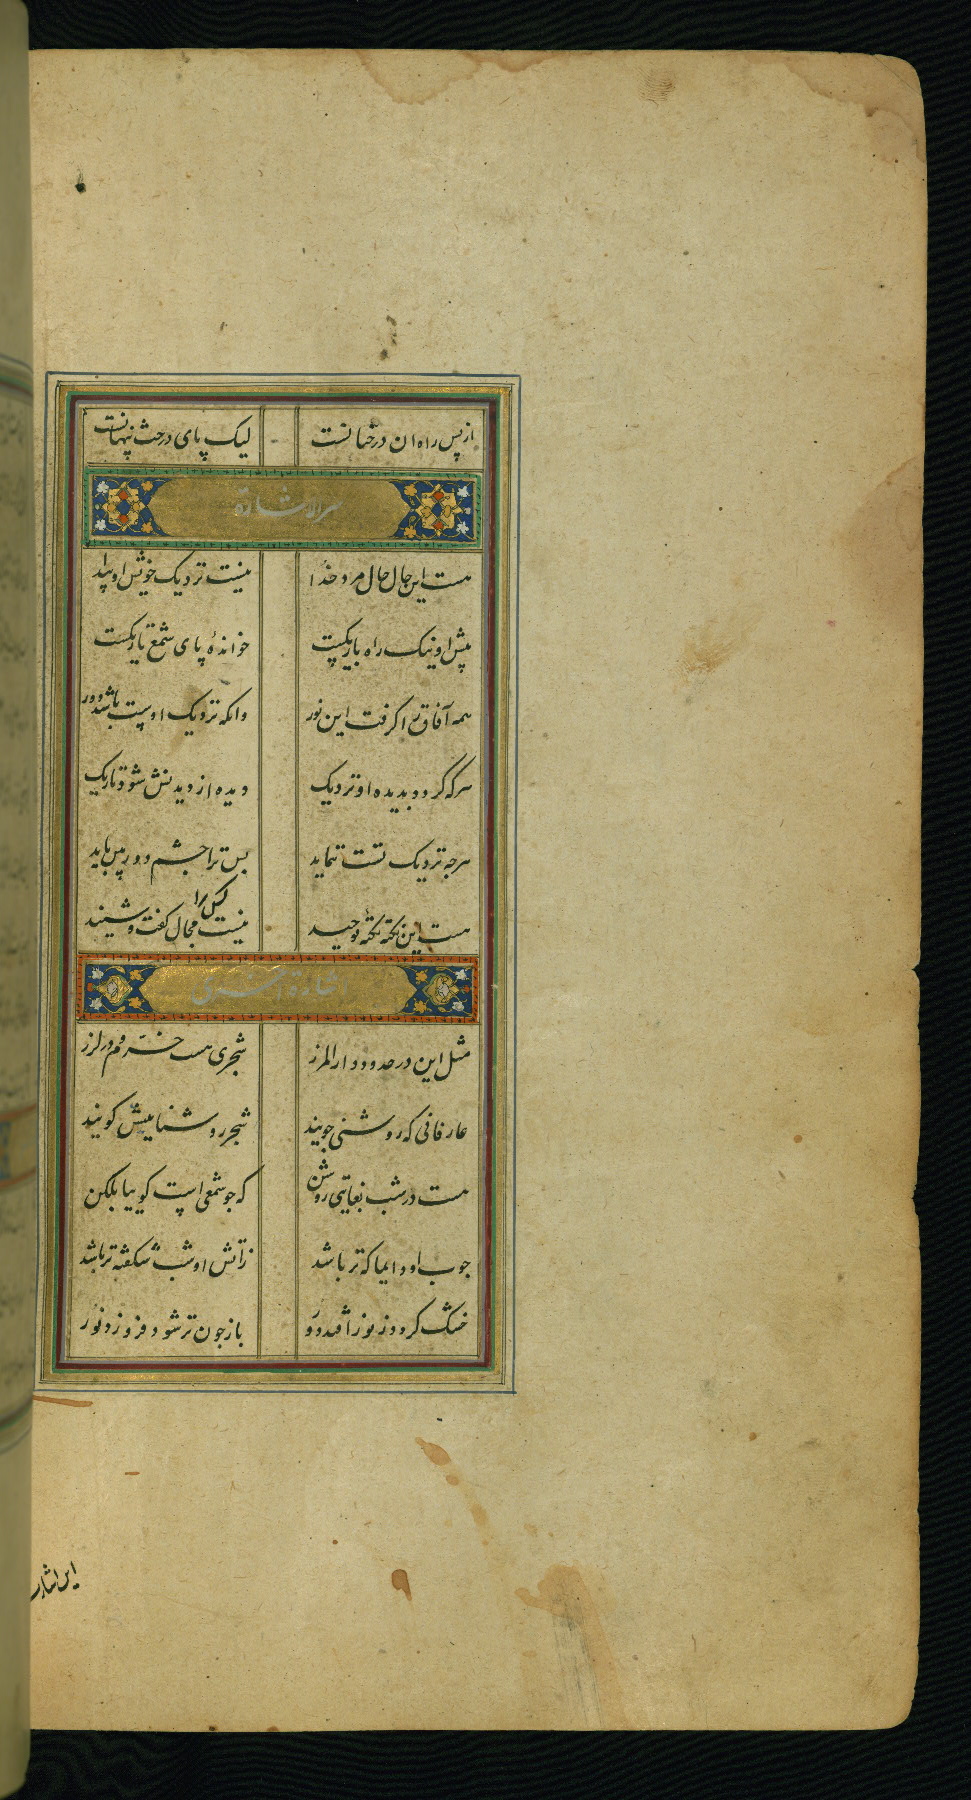 از پس راه ان درختانست لیک پای درخت پنهانست
سر الاشارة
هست این حال حال مرد خدا نیست نزدیک خویش او پیدا
پیش او نیک راه باریکست خواندهٔ پای شمع تاریکست
همه آفاق را کرفت این نور وانکه نزدیک اوست باشد دور
هرکه کردد بدیده او نزدیک دیده از دیدنش شود تاریک
هرچه نزدیک تست ننماید بس ترا چشم دوربین باید
هست این نکته نکتهٔ توحید نیست کس را مجال کفت و شنید
اشارة اخری
مثل این در حدود دار المرز شجری هست خرم و در لرز
عارفانی که روشنی جویند شجر روشناییش کویند
هست در شب بغایتی روشن که چو شمعی است کوییا بلکن
چوب او دایما که تر باشد زآتش او شب شکفته تر باشد
خشک کردد ز نور افتد دور باز چون تر شود فروزد نور
این اشارت